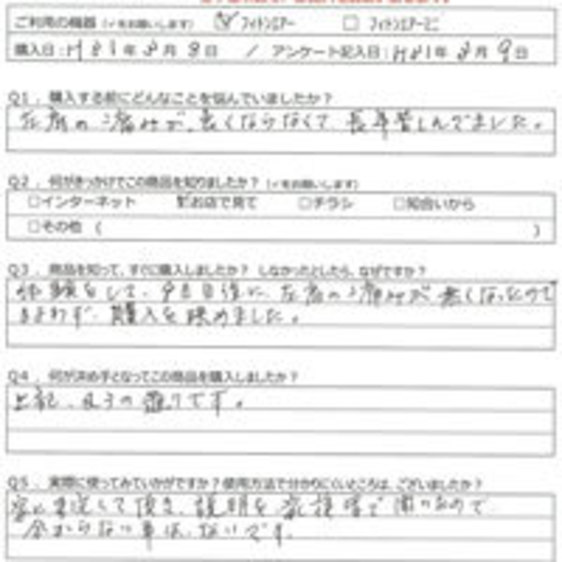 ご利用の機器 (✓をお願いします) ☑フィトンエアー □フィトンエアーミニ
購入日:H31年3月8日 / アンケート記入日:H31年3月9日
Q1. 購入する前にどんなことを悩んでいましたか?
左肩の痛みが、良くならなくて、長年苦しんでました。
Q2. 何がきっかけでこの商品を知りましたか? (✓をお願いします)
□インターネット ☑お店で見て □チラシ □知合いから
□その他 ( )
Q3. 商品を知って、すぐに購入しましたか? しなかったとしたら、なぜですか?
体験をして、 日目後に、左肩の痛みが無くなったので
まよわず、購入を決めました。
Q4. 何が決め手となってこの商品を購入しましたか?
上記、 の通りです。
Q5. 実際に使ってみていかがですか?使用方法で分かりにくいところは、ございましたか?
して頂き、説明を家族皆で聞いたので
分からない事は、ないです。